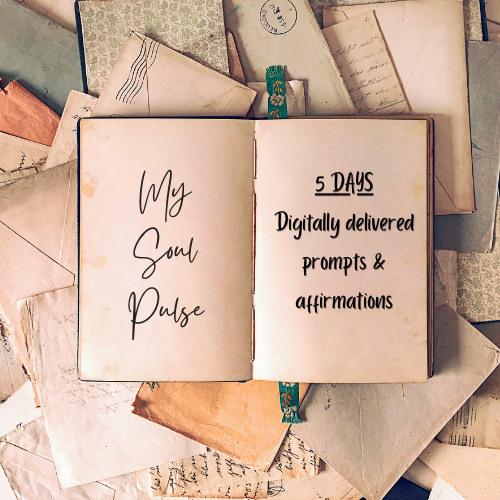 My
Soul
Pulse
5 DAYS
Digitally delivered
prompts &
affirmations